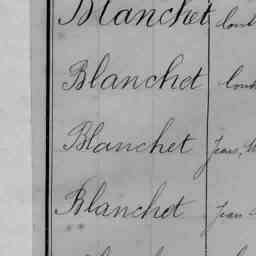 Blanchet
Blanchet
Blanchet Jean,
Blanchet Jean